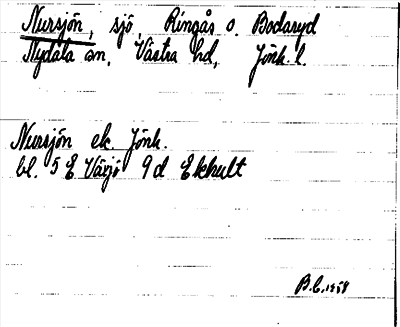 Nursjön, sjö, Ringås o. Bodaryd
Nydala sn, Västra hd, Jönk. l.
Nursjön ek. Jönk.
bl. 5 E Växjö 9d Ekhult
B.E. 1958